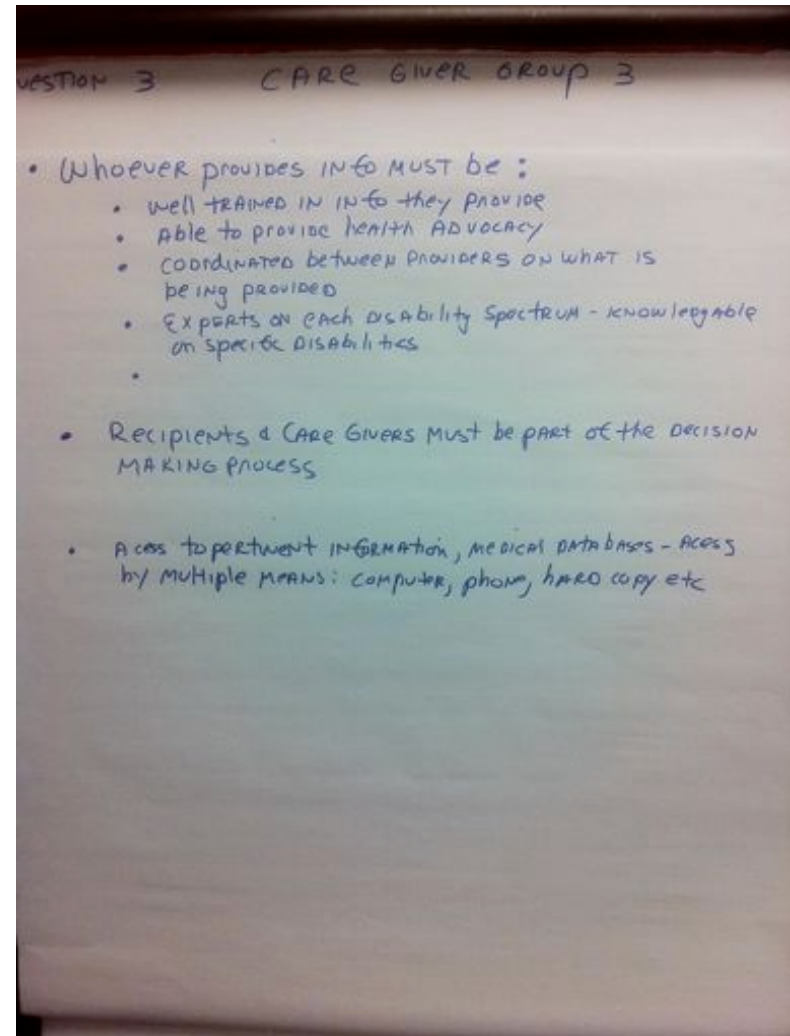 UESTION 3 CARE GIVER GROUP 3
• Whoever provides INfo MUST be :
• well TRAINED IN INfo they PROVIDE
• Able to provide heAlth ADVOCACY
• COORDINATED between PROVIDERS ON whAT IS
beING PROVIDED
• EXPERTS ON EACH DISAbility SpectRUM - KNOWledgAble
on specific DISAbilities
•
• Recipients & CARE GIVERS MUST be pARt of the DECISION
MAKING PROCESS
• Acess to pertinent INfoRMAtion, MEDICAl DATAbASES - Acess
by MUltiple MEANS: COMPUTER, phONE, hARD COPY etc